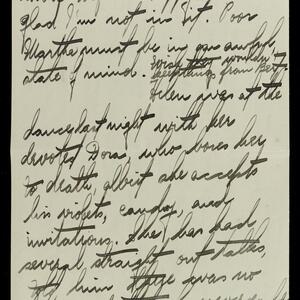 glad I'm not in it. Poor
Martha must be in an awful
state of mind.
Helen was at the
dance last night with her
devoted Don, who bores her
to death, albeit she accepts
his violets, candy, and
invitations. She has had
several straight out talks
him there was no